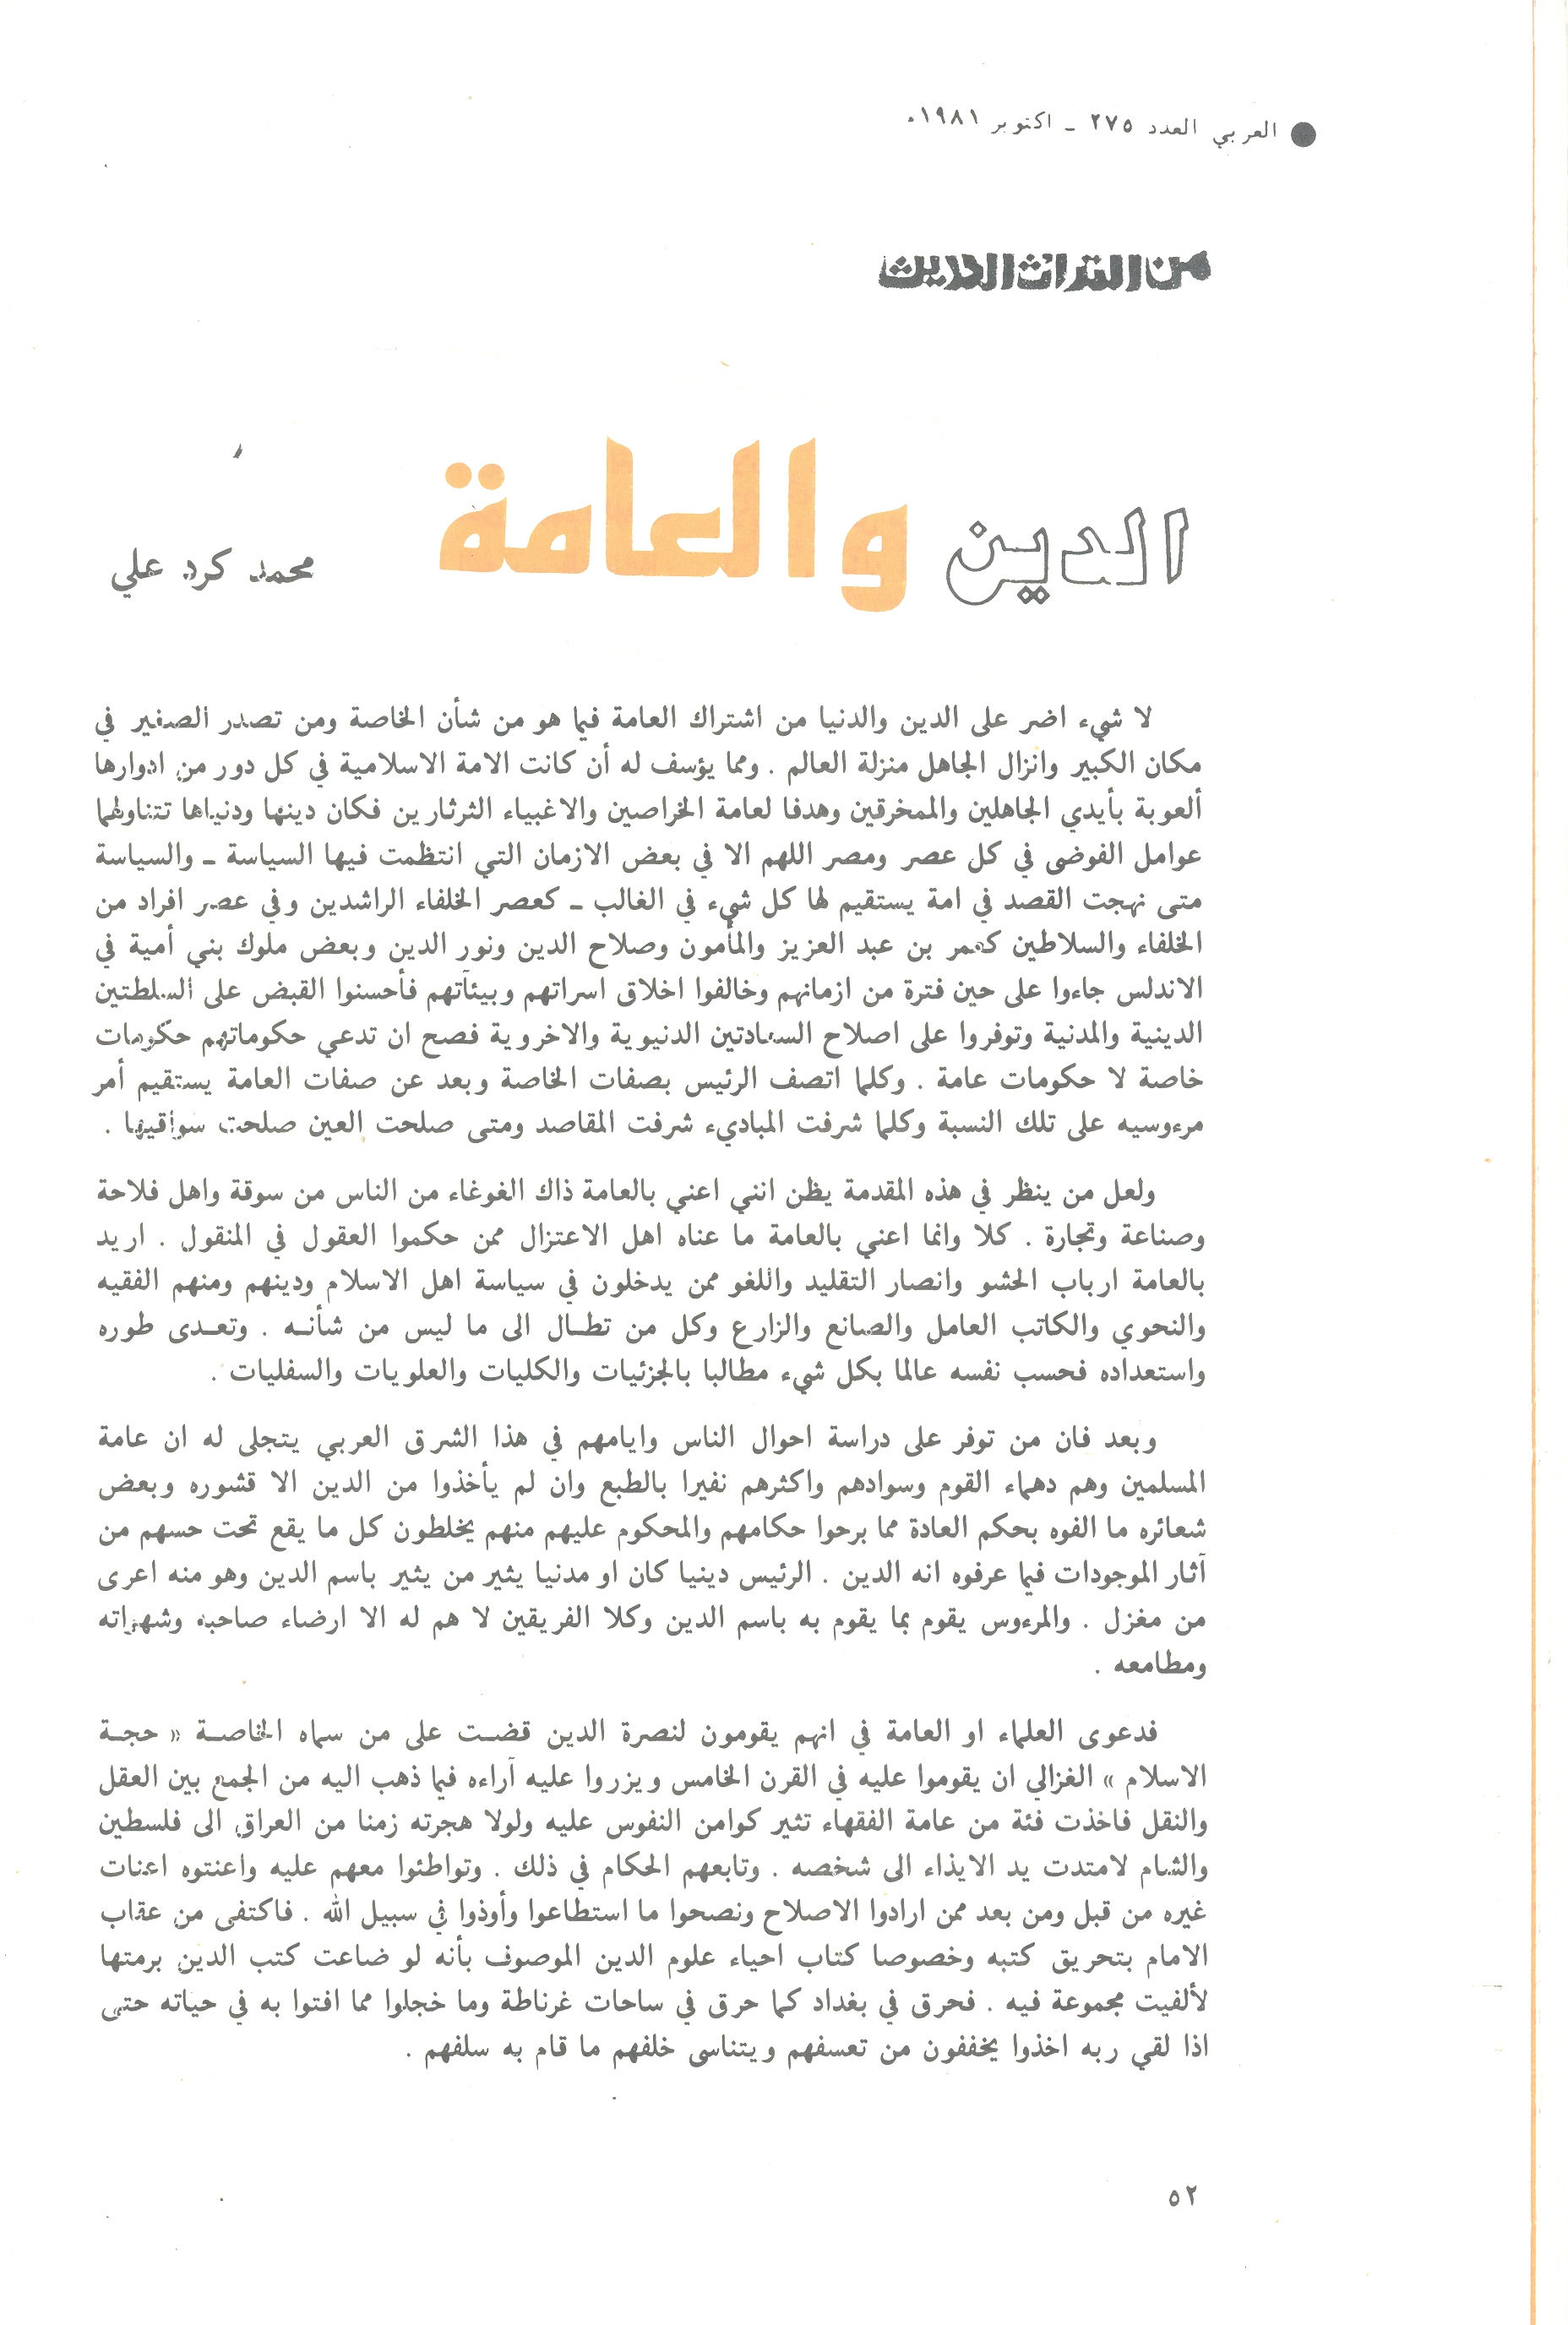 العربي العدد ٢٧٥ ـ اكتوبر ١٩٨١م
من التراث الحديث
الدين والعامة
محمد كرد علي
لا شيء اضر على الدين والدنيا من اشتراك العامة فيما هو من شأن الخاصة ومن تصدر الصغير في
مكان الكبير وانزال الجاهل منزلة العالم . ومما يؤسف له أن كانت الامة الاسلامية في كل دور من ادوارها
ألعوبة بأيدي الجاهلين والممخرقين وهدفا لعامة الخراصين والاغبياء الثرثارين فكان دينها ودنياها تتناولهما
عوامل الفوضى في كل عصر ومصر اللهم الا في بعض الازمان التي انتظمت فيها السياسة ـ والسياسة
متى نهجت القصد في امة يستقيم لها كل شيء في الغالب ـ كعصر الخلفاء الراشدين وفي عصر افراد من
الخلفاء والسلاطين كعمر بن عبد العزيز والمأمون وصلاح الدين ونور الدين وبعض ملوك بني أمية في
الاندلس جاءوا على حين فترة من ازمانهم وخالفوا اخلاق اسراتهم وبيئآتهم فأحسنوا القبض على السلطتين
الدينية والمدنية وتوفروا على اصلاح السعادتين الدنيوية والاخروية فصح ان تدعي حكوماتهم حكومات
خاصة لا حكومات عامة . وكلما اتصف الرئيس بصفات الخاصة وبعد عن صفات العامة يستقيم أمر
مرءوسيه على تلك النسبة وكلما شرفت المباديء شرفت المقاصد ومتى صلحت العين صلحت سواقيها .
ولعل من ينظر في هذه المقدمة يظن انني اعني بالعامة ذاك الغوغاء من الناس من سوقة واهل فلاحة
وصناعة وتجارة . كلا وانما اعني بالعامة ما عناه اهل الاعتزال ممن حكموا العقول في المنقول . اريد
بالعامة ارباب الحشو وانصار التقليد واللغو ممن يدخلون في سياسة اهل الاسلام ودينهم ومنهم الفقيه
والنحوي والكاتب العامل والصانع والزارع وكل من تطـال الى ما ليس من شأنـه . وتعـدى طوره
واستعداده فحسب نفسه عالما بكل شيء مطالبا بالجزئيات والكليات والعلويات والسفليات .
وبعد فان من توفر على دراسة احوال الناس وايامهم في هذا الشرق العربي يتجلى له ان عامة
المسلمين وهم دهماء القوم وسوادهم واكثرهم نفيرا بالطبع وان لم يأخذوا من الدين الا قشوره وبعض
شعائره ما الفوه بحكم العادة مما برحوا حكامهم والمحكوم عليهم منهم يخلطون كل ما يقع تحت حسهم من
آثار الموجودات فيما عرفوه انه الدين . الرئيس دينيا كان او مدنيا يثير من يثير باسم الدين وهو منه اعرى
من مغزل . والمرءوس يقوم بما يقوم به باسم الدين وكلا الفريقين لا هم له الا ارضاء صاحبه وشهواته
ومطامعه .
فدعوى العلماء او العامة في انهم يقومون لنصرة الدين قضـت على من سماه الخاصـة « حجـة
الاسلام » الغزالي ان يقوموا عليه في القرن الخامس ويزروا عليه آراءه فيما ذهب اليه من الجمع بين العقل
والنقل فاخذت فئة من عامة الفقهاء تثير كوامن النفوس عليه ولولا هجرته زمنا من العراق الى فلسطين
والشام لامتدت يد الايذاء الى شخصه . وتابعهم الحكام في ذلك . وتواطئوا معهم عليه واعنتوه اعنات
غيره من قبل ومن بعد ممن ارادوا الاصلاح ونصحوا ما استطاعوا وأوذوا في سبيل الله . فاكتفى من عقاب
الامام بتحريق كتبه وخصوصا كتاب احياء علوم الدين الموصوف بأنه لو ضاعت كتب الدين برمتها
لألفيت مجموعة فيه . فحرق في بغداد كما حرق في ساحات غرناطة وما خجلوا مما افتوا به في حياته حتى
اذا لقي ربه اخذوا يخففون من تعسفهم ويتناسى خلفهم ما قام به سلفهم .
٥٢